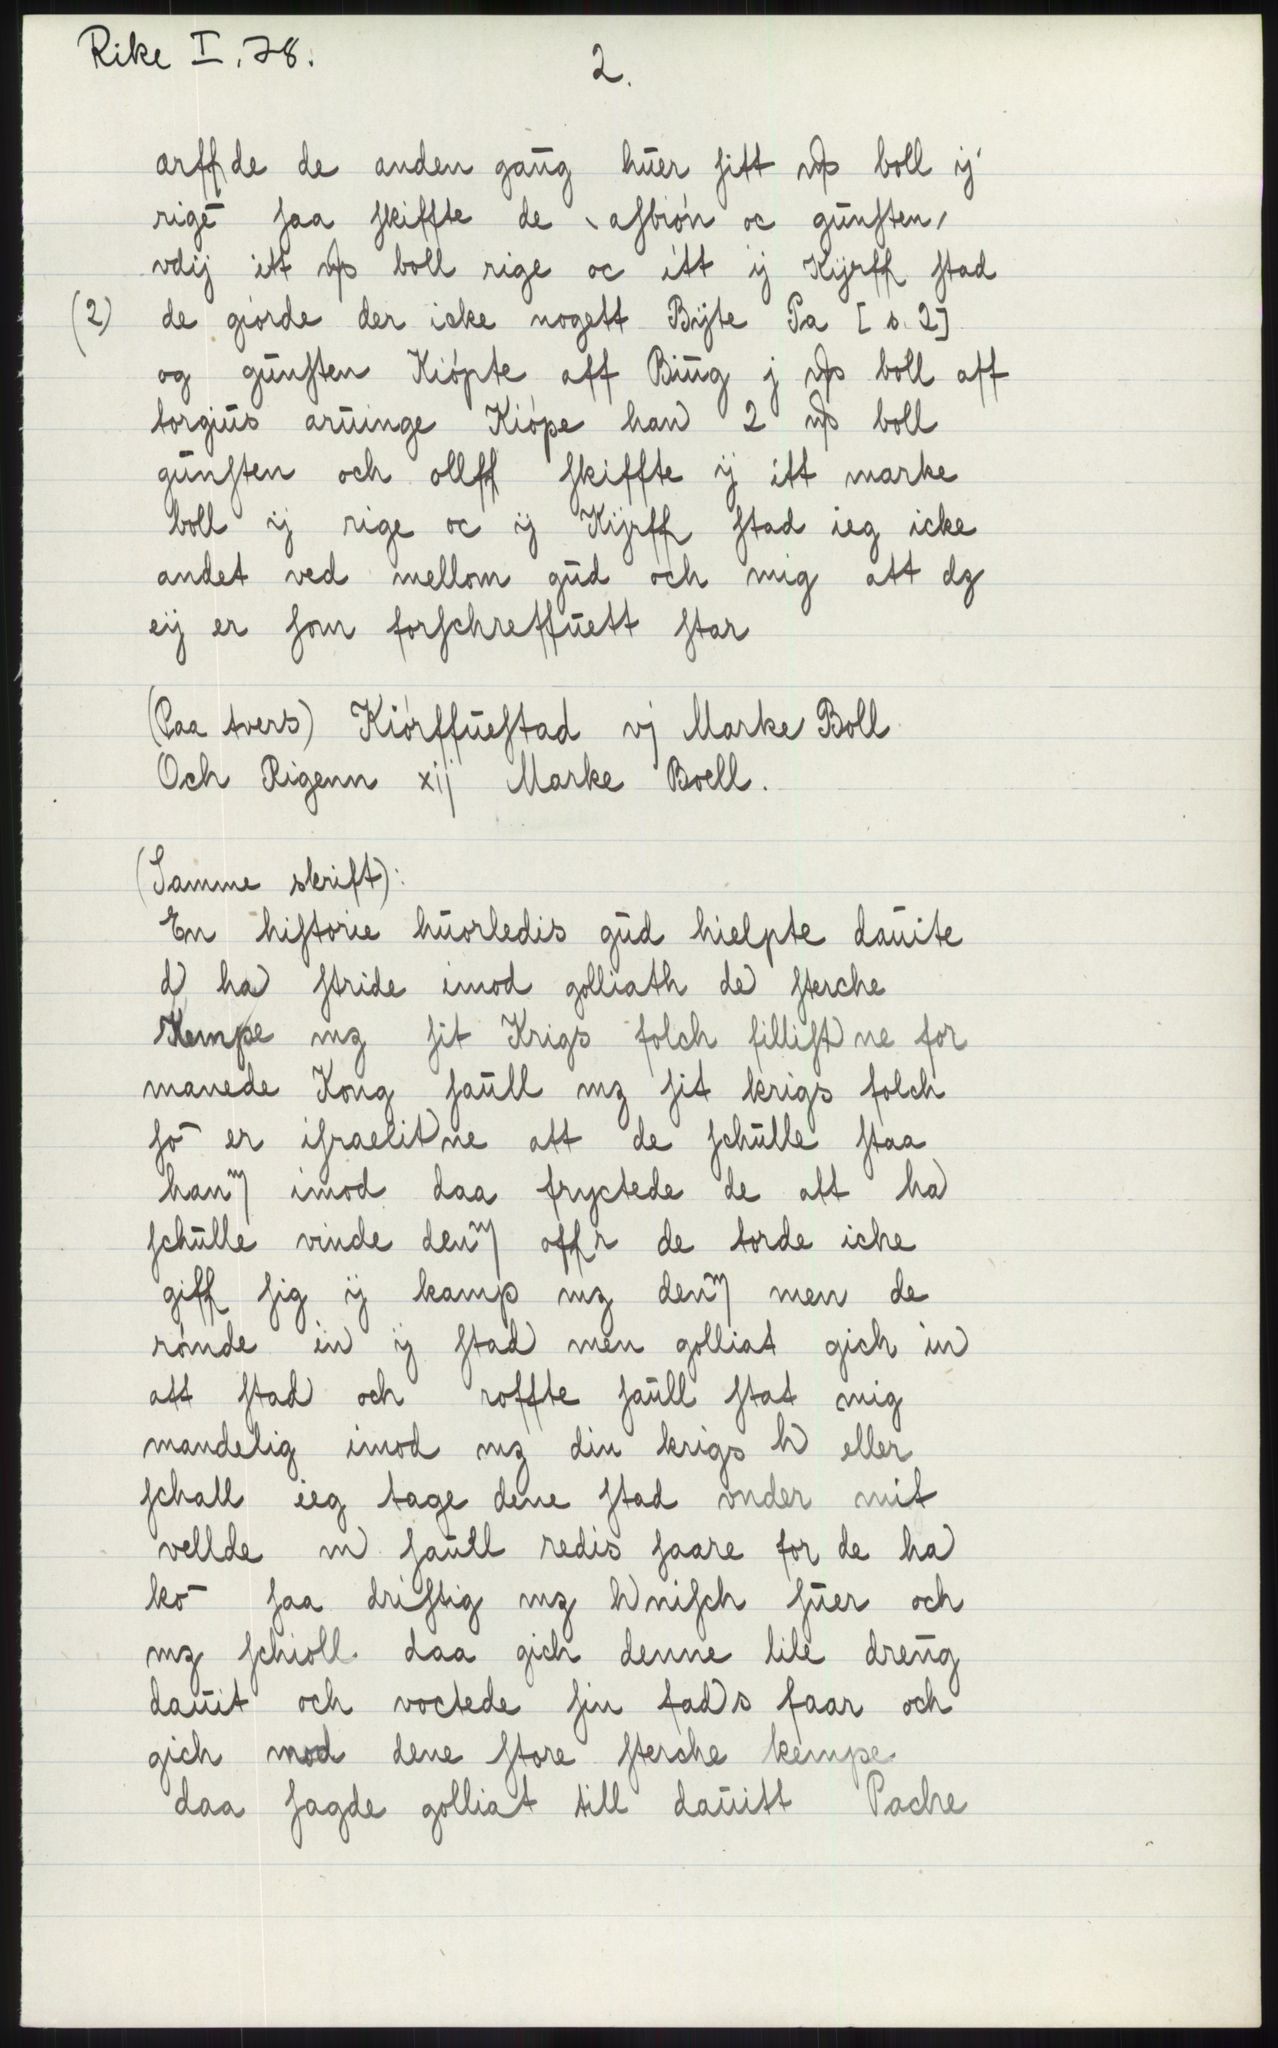 Rike I, 78.
2.
arffde de anden gaŭg hŭer ſitt boll ij
rigē ſaa ſkiffte de asbión oc gŭnſten,
vdij itt boll rige oc itt ij Kijrff ſtad
(2) de giórde der icke nogett Bijte Pa [s. 2]
og gŭnſten Kiópte aff Biŭg j boll aff
torgiŭs arŭinge Kiópe han 2 boll
gŭnſten och ollff ſkiffte ij itt marke
boll ij rige oc ij Kijrff ſtad ieg icke
andet ved mellom gŭd och mig att dz
eij er ſom forſchreffŭett ſtar
(Paa tvers) Kiórffŭeſtad vj Marke Boll
Och Rigenn xij Marke Boell.
(Samme skrift):
En hiſtorie hŭorledis gŭd hielpte daŭite
d ha ſtride imod golliath de ſterche
Kempe mz ſit Krigs folch filliſt ne for
manede Kong ſaŭll mz ſit krigs folch
ſō er iſraelit ne att de ſchŭlle ſtaa
han imod daa fryctede de att ha
ſchŭlle vinde den offr de torde icke
giff ſig ij kamp mz den men de
rómde in ij ſtad men golliat gich in
att ſtad och roffte ſaŭll ſtat mig
mandelig imod mz din krigs h eller
ſchall ieg tage dene ſtad vnder mit
vellde m ſaŭll redis ſaare for de ha
kō ſaa driſtig mz h niſch ſŭer och
mz ſchioll daa gich denne lile dreŭg
daŭit och voctede ſin fad s faar och
gich mod dene ſtore ſterche kempe
daa ſagde golliat till daŭitt Pache